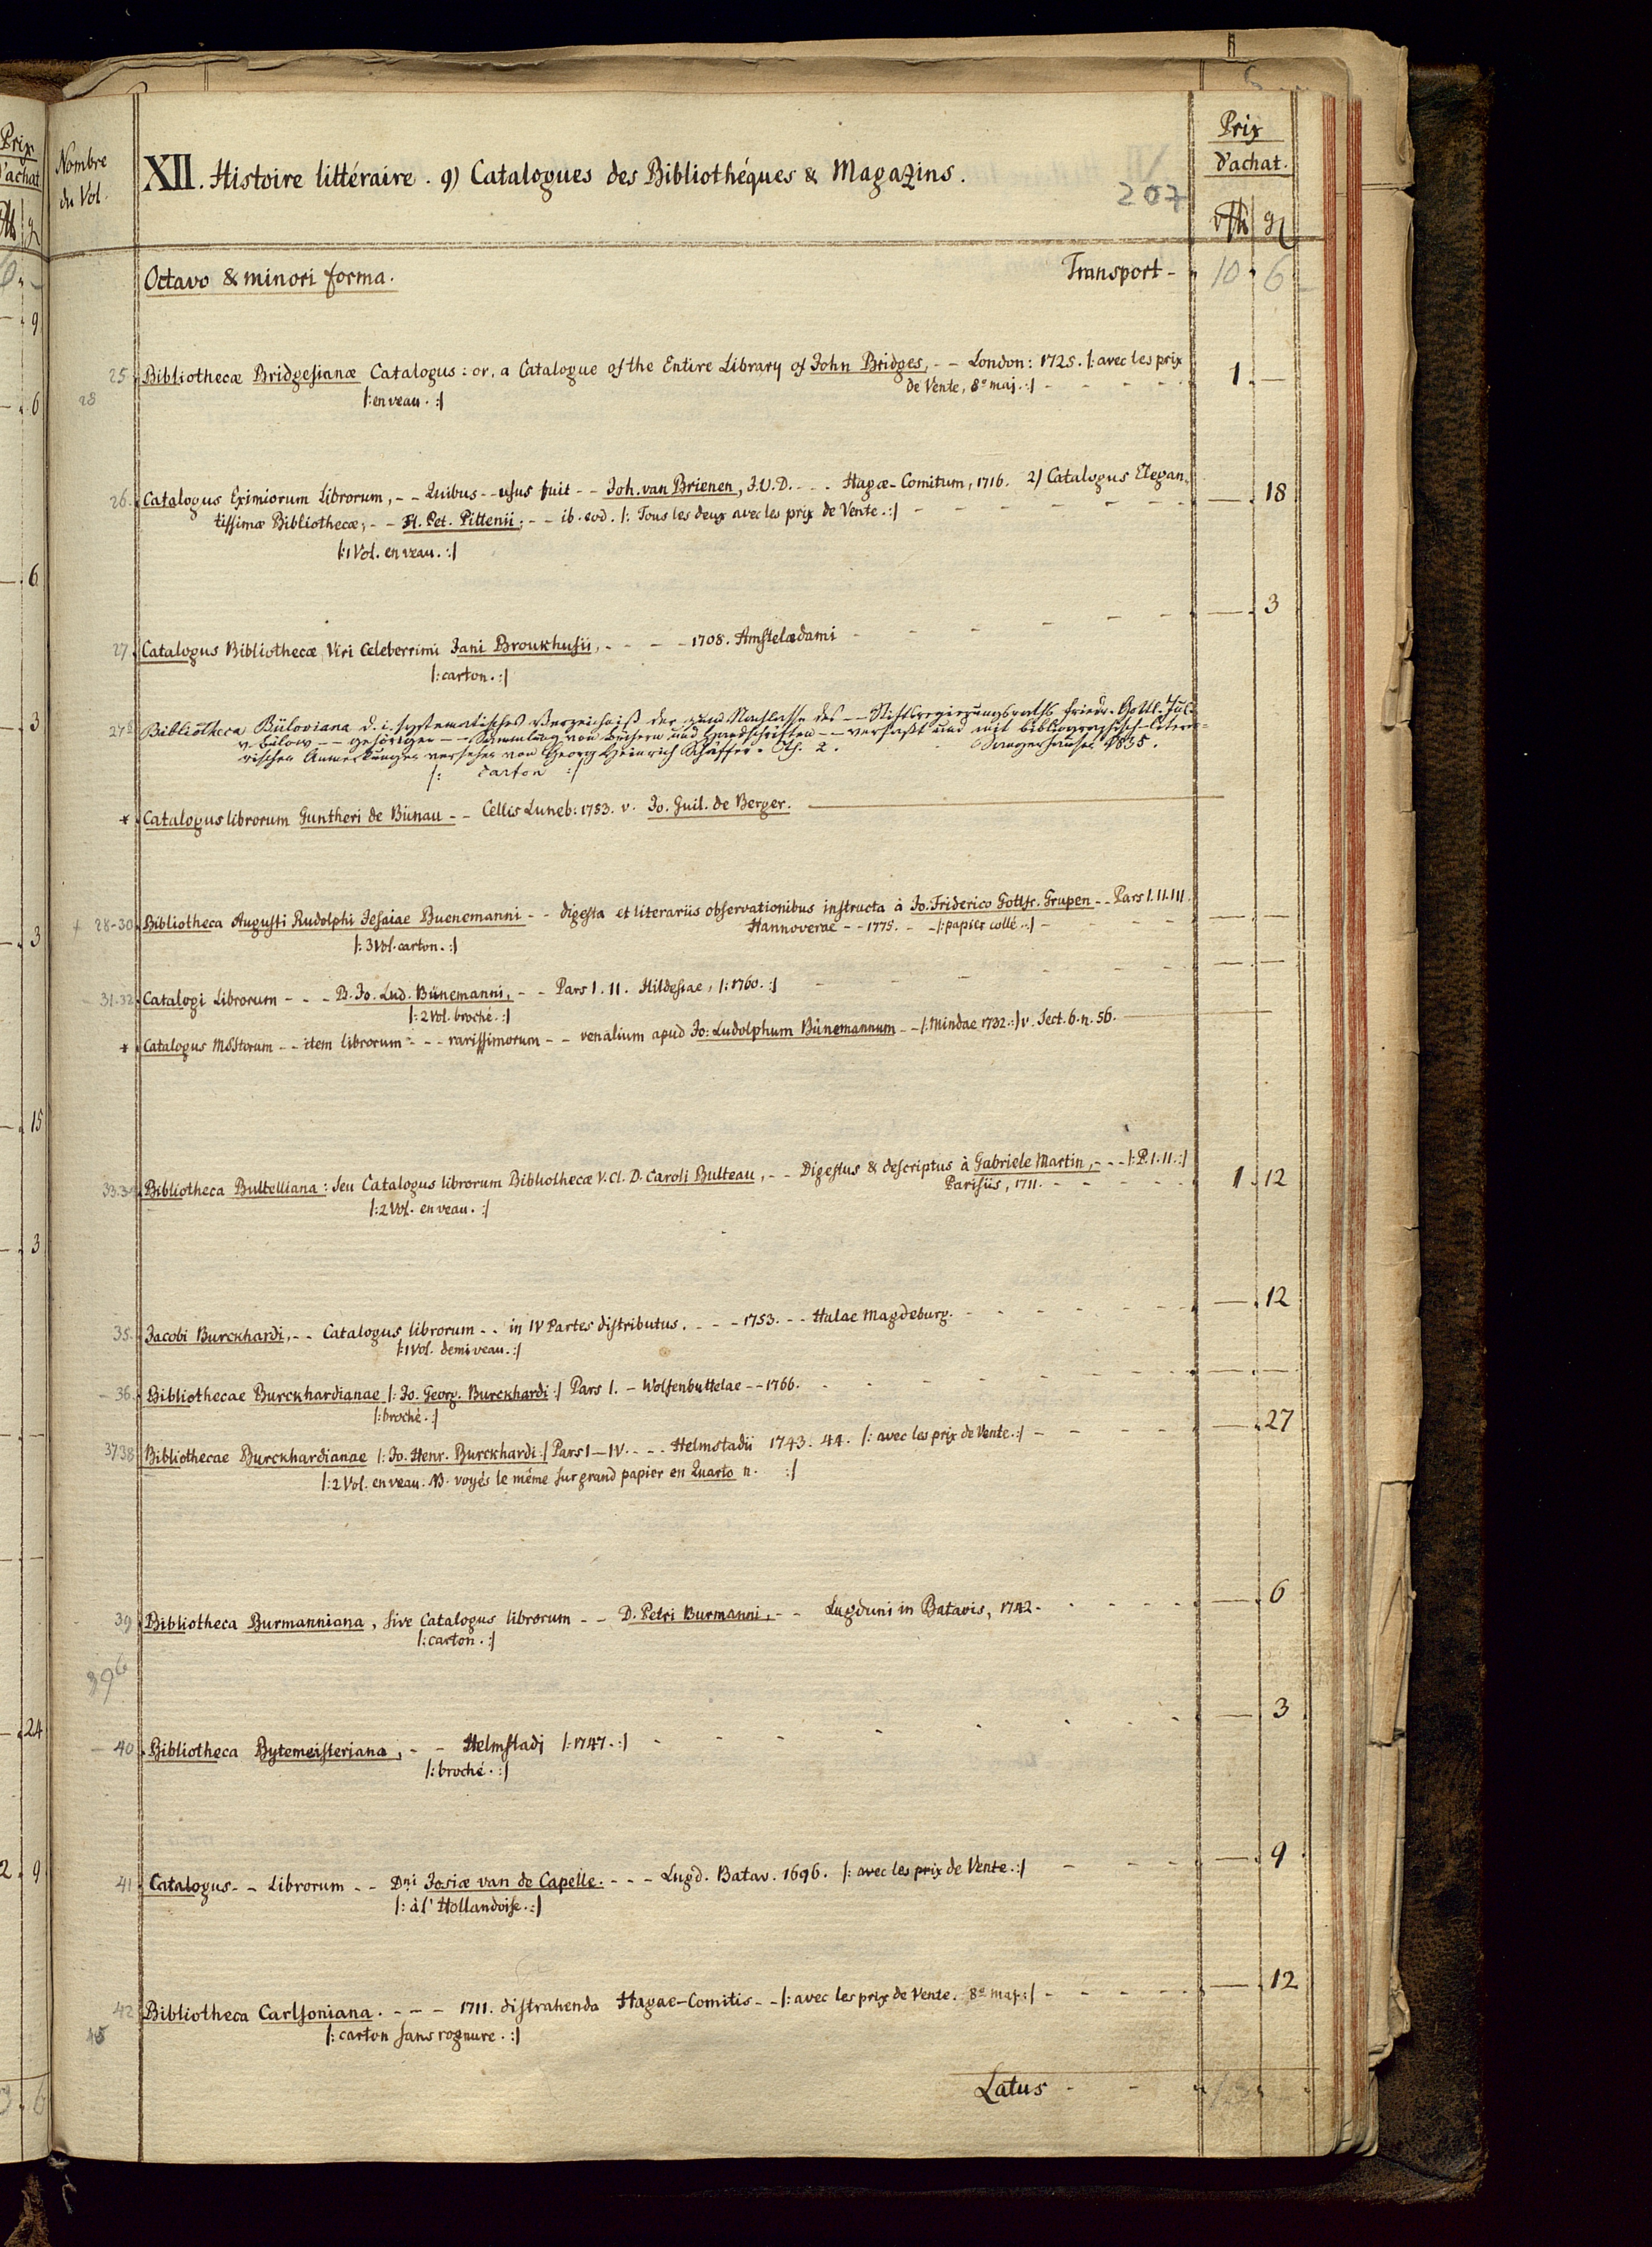 Prix
d'achat
Nombre
du Vol.
XII. Histoire littéraire. 9) Catalogues des Bibliothéques & Magazins.
207
Prix
d'achat.
Octavo & minori forma.
Transport - 10 6
25 Bibliothecæ Bridgesianæ Catalogus: or, a Catalogue of the Entire Library of John Bridges, - - London: 1725. /: avec les prix 1 —
de Vente, 8º maj. :/
28
/: en veau. :/
26. Catalogus Eximiorum Librorum, - - Quibus - - usus fuit - - Joh. van Brienen, J.U.D. - - - Hagæ-Comitum, 1716. 2) Catalogus Elegan- — 18
tissimæ Bibliothecæ, - - H. Pet. Pittenii; - - ib. eod. /: Tous les deux avec les prix de Vente. :/
/: 1 Vol. en veau. :/
27. Catalogus Bibliothecæ Viri Celeberrimi Jani Broukhusii, - - - - 1708. Amstelædami — 3
/: carton. :/
27b Bibliotheca Büloviana d. i. systematisches Verzeichniß der zum Nachlasse des - - Stiftsregierungsraths Friedr. Gottl. Jul.
v. Bülow - - gehörigen - - Sammlung von Büchern und Handschriften - - verfaßt und mit bibliographisch-litera-
rischen Anmerkungen versehen von Georg Heinrich Schäffer. Th. 2. Sangerhausen 1835.
/: carton :/
* Catalogus librorum Guntheri de Bünau - - Cellis Luneb: 1753. v. Jo. Guil. de Berger.
28-30 Bibliotheca Augusti Rudolphi Jesaiae Buenemanni - - digesta et literariis observationibus instructa à Jo. Friderico Gottfr. Grupen - - Pars I. II. III. — —
Hannoverae - - 1775. - - /: papier collé. :/
/: 3 Vol. carton. :/
31.32 Catalogi Librorum - - - B. Jo. Lud. Bünemanni, - - Pars I. II. Hildesiae, /: 1760. :/ — —
/: 2 Vol. broché. :/
* Catalogus MSStorum - - item librorum - - - rarissimorum - - venalium apud Jo: Ludolphum Bünemannum - - /: Mindae 1732. :/ v. Sect. 6. n. 56.
33.34 Bibliotheca Bultelliana: seu Catalogus librorum Bibliothecæ V. Cl. D. Caroli Bulteau, - - Digestus & descriptus à Gabriele Martin, - - - /: P. I. II. :/ 1 12
Parisiis, 1711.
/: 2 Vol. en veau. :/
35. Jacobi Burckhardi, - - Catalogus librorum - - in IV Partes distributus. - - - 1753. - - Halae Magdeburg. — 12
/: 1 Vol. demi veau. :/
36. Bibliothecae Burckhardianae /: Jo. Georg. Burckhardi :/ Pars I. - Wolfenbuttelae - - 1766. — —
/: broché. :/
37.38 Bibliothecae Burckhardianae /: Jo. Henr. Burckhardi :/ Pars I—IV. - - - Helmstadii 1743. 44. /: avec les prix de Vente. :/ — 27
/: 2 Vol. en veau. NB. voyés le même sur grand papier en Quarto n. :/
39 Bibliotheca Burmanniana, sive Catalogus librorum - - D. Petri Burmanni, - - Lugduni in Batavis, 1742. — 6
/: carton. :/
39b
40. Bibliotheca Bytemeisteriana, - - Helmstadj /: 1747. :/ — 3
/: broché. :/
41 Catalogus - - Librorum - - Dni Josiæ van de Capelle. - - - Lugd. Batav. 1696. /: avec les prix de Vente. :/ — 9
/: à l'Hollandoise. :/
42 Bibliotheca Carlsoniana. - - - 1711. distrahenda Hagae-Comitis - - /: avec les prix de Vente. 8º maj. :/ — 12
45
/: carton sans rognure. :/
Latus